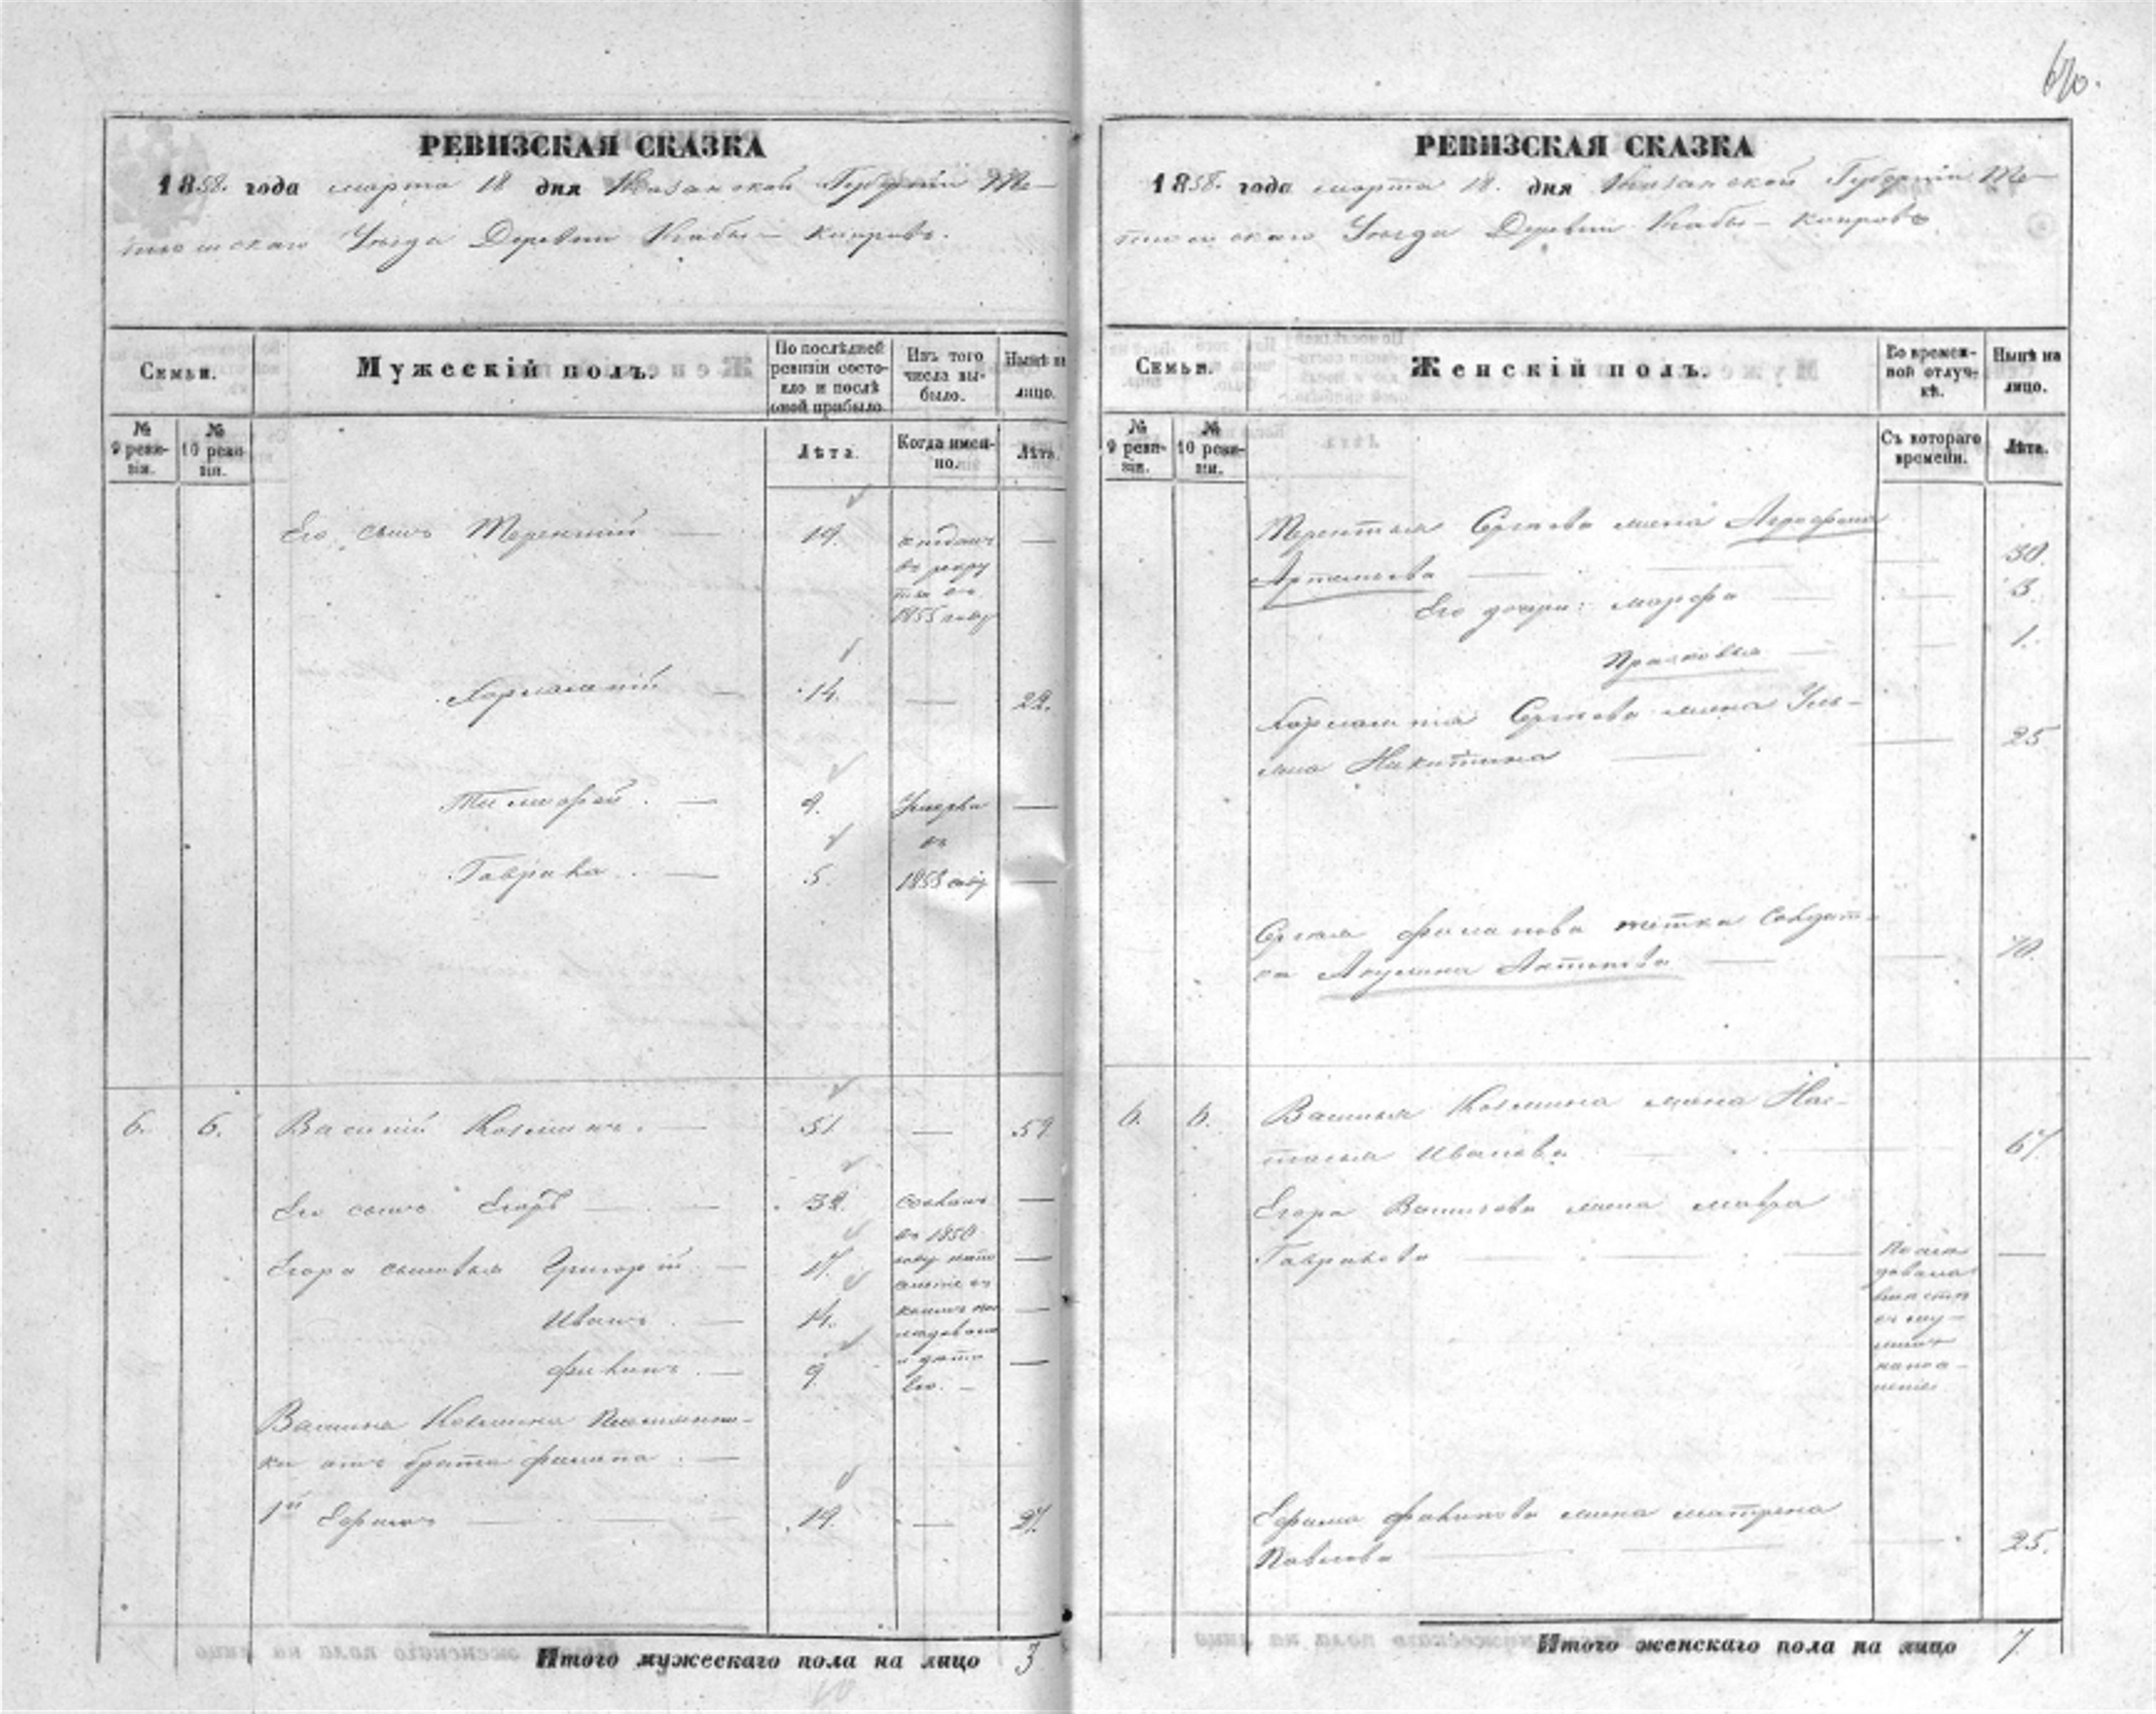 670.
РЕВИЗСКАЯ СКАЗКА
1858. года марта 18 дня Казанской Губерніи Те-
тюшскаго Уѣзда Деревни Кабы-Копровъ.
Семьи.
Мужескій полъ.
По послѣдней
ревизіи состо-
яло и послѣ
оной прибыло.
Изъ того
числа вы-
было.
Нынѣ на
лицо.
№
9 реви-
зіи.
№
10 реви-
зіи.
Лѣта.
Когда имен-
но.
Лѣта.
Его сынъ Терентій — 19. отданъ —
въ рекру
ты въ
1855 году
Харлампій — 14. — 22.
Тимофей — 9. Умерли —
въ
Гаврила — 5. 1853 году —
6. 6. Василій Козминъ. — 51 — 59
Его сынъ Егоръ — 32. сосланъ —
въ 1850
Егора сыновья Григорій — 17. году на по —
селеніе съ
Иванъ — 14. —
Филипъ — 9. и дѣти —
его. —
Василья Козмина племянни-
ки отъ брата Филипа —
1й Ефимъ — 19. — 27.
Итого мужескаго пола на лицо 3
РЕВИЗСКАЯ СКАЗКА
1858. года марта 18. дня Казанской Губерніи Те-
тюшскаго Уѣзда Деревни Кабы-Копровъ
Семьи.
Женскій полъ.
Во времен-
ной отлуч-
кѣ.
Нынѣ на
лицо.
№
9 реви-
зіи.
№
10 реви-
зіи.
Съ котораго
времени.
Лѣта.
Терентья Сергѣева жена Агрофена
Артемьева — — 30.
Его дочери: Марфа — — 3.
Прасковья — — 1.
Харлампія Сергѣева жена Улья-
на Никитина — — 25
Сергѣя Филипова тетка Солдат-
ка Акулина Антипова — — 70.
6. 6. Василья Козмина жена Нас-
тасья Иванова — 67.
Егора Васильева жена Мавра
Гаврилова — Послѣ —
довала
вмѣстѣ
съ му-
жемъ
на посе-
леніе
Ефима Филипова жена Матрена
Павлова — — 25.
Итого женскаго пола на лицо 7.